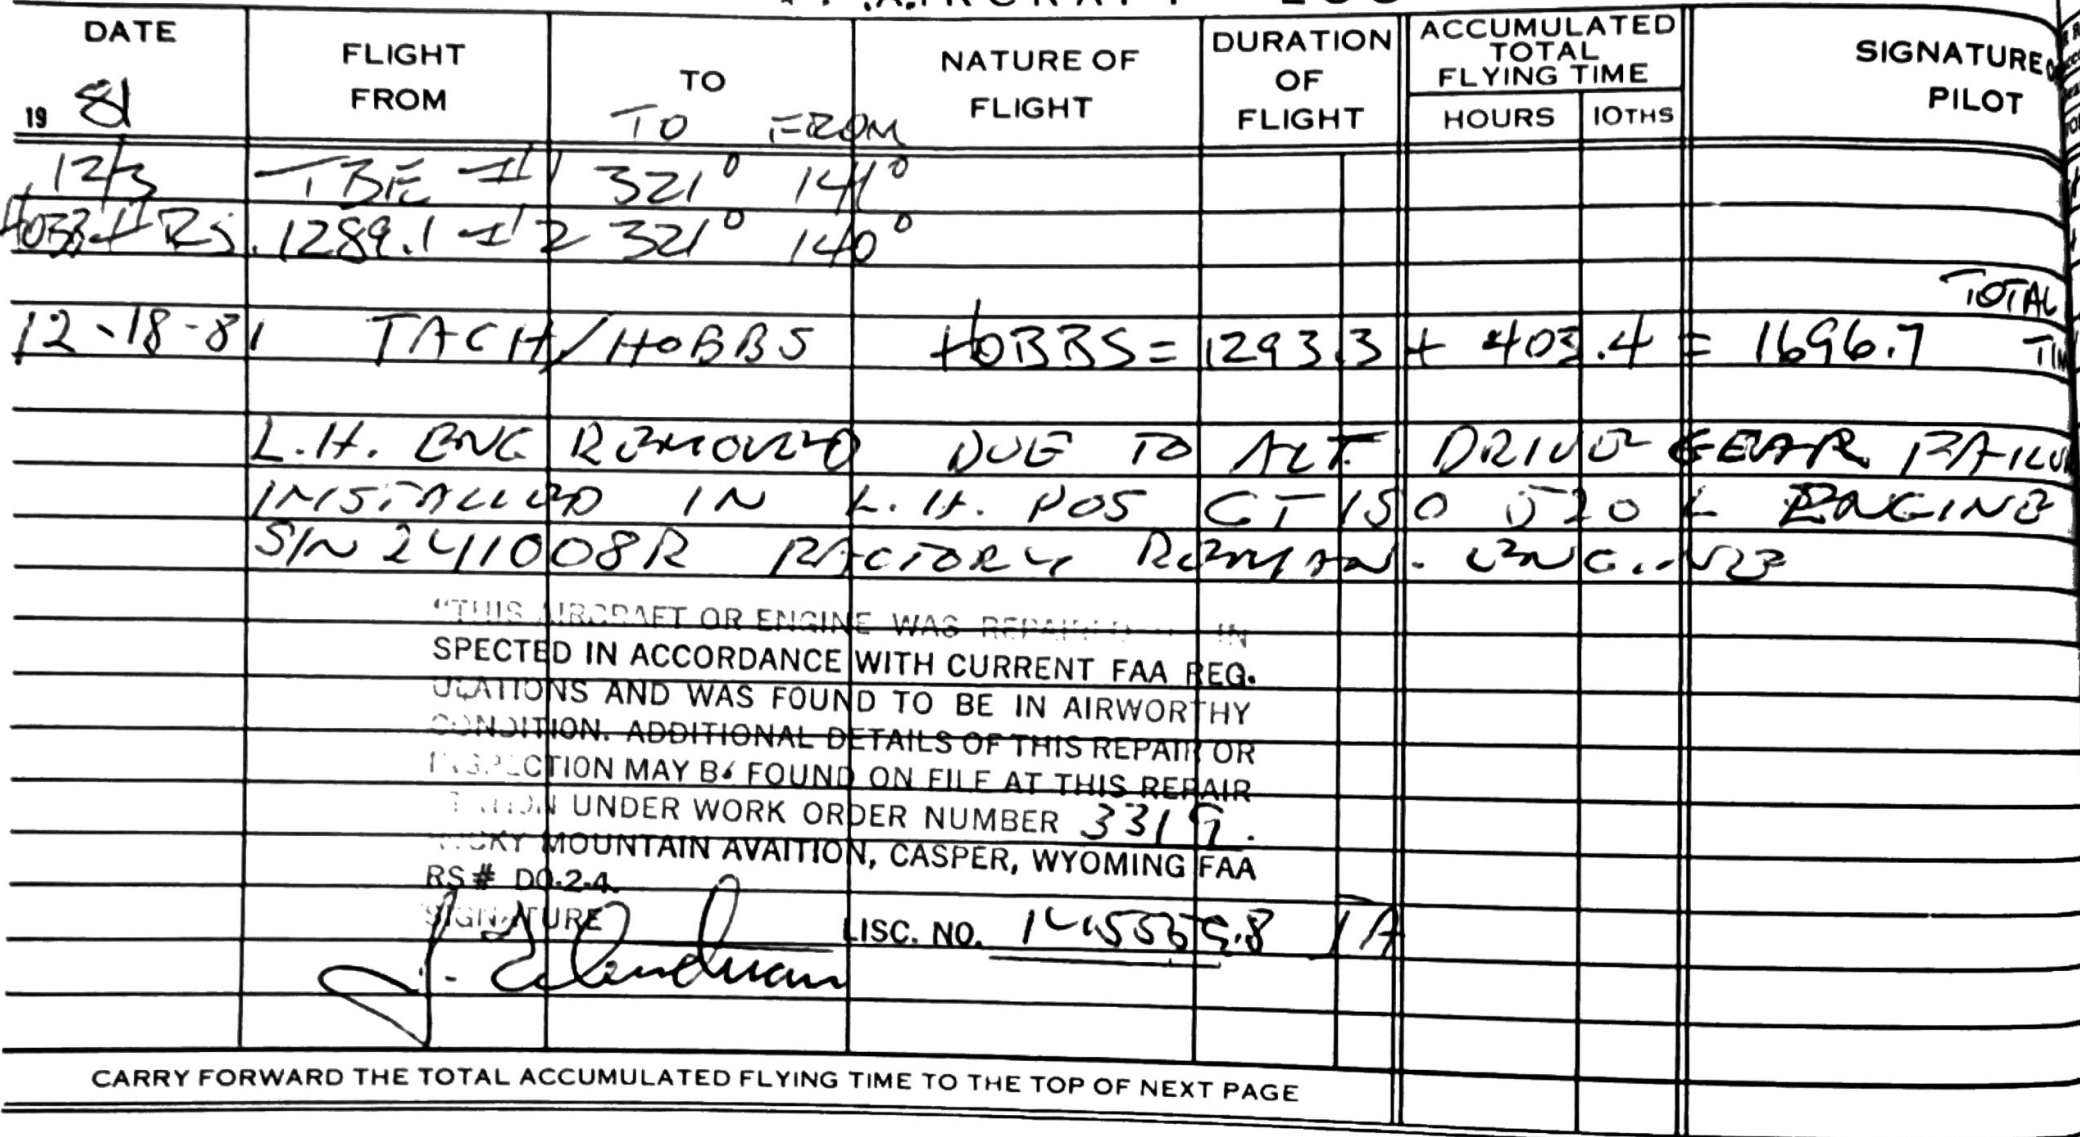 AIRCRAFT LOG
DATE FLIGHT FROM TO NATURE OF FLIGHT DURATION OF FLIGHT ACCUMULATED TOTAL FLYING TIME HOURS 10THS SIGNATURE PILOT
19 81 TO FROM
12/3 TBE #1 321° 141°
HOBB HRS. 1289.1 #2 321° 140°
TOTAL
12-18-81 TACH/HOBBS HOBBS = 1293.3 + 403.4 = 1696.7
L.H. ENG REMOVED DUE TO ALT. DRIVE GEAR
INSTALLED IN L.H. POS 520 L ENGINE
S/N 241008R FACTORY REMAN. ENG.
"THIS AIRCRAFT OR ENGINE WAS REPAIRED IN
SPECTED IN ACCORDANCE WITH CURRENT FAA REG.
ULATIONS AND WAS FOUND TO BE IN AIRWORTHY
CONDITION. ADDITIONAL DETAILS OF THIS REPAIR OR
INSPECTION MAY BE FOUND ON FILE AT THIS REPAIR
STATION UNDER WORK ORDER NUMBER 3319.
ROCKY MOUNTAIN AVAITION, CASPER, WYOMING FAA
RS# DO-2-4
SIGNATURE LISC. NO. IA
CARRY FORWARD THE TOTAL ACCUMULATED FLYING TIME TO THE TOP OF NEXT PAGE